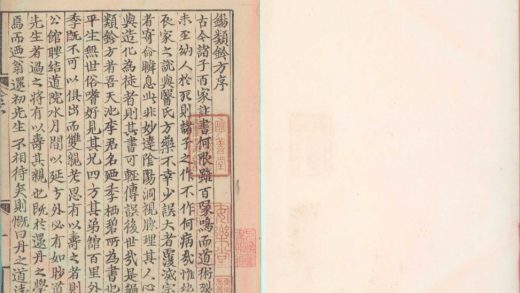 錫類鈐方序
古今諸子百家註書何限雖百喙鳴而道術裂
未至納人於死則諸子之作不作何病哉惟地
夜家之說與醫氏方藥不幸少誤大者覆滅宗
者命瞬息此非妙達陰陽洞視脉理其人心
與造化為徒者則其書可輕傳誤後世哉是錫
類鈐方者吾天池李君名季栖碧所為書也
平生無世俗嗜好見其兄四方其弟館百里外
季既不可以俱出而雙親老思有以壽之者則
公館聘結道院水月間以延方外必有如道
先生者過之將有以壽其親也既於還丹之學
焉而迺翁還初先生不相待矣則慨曰丹之道